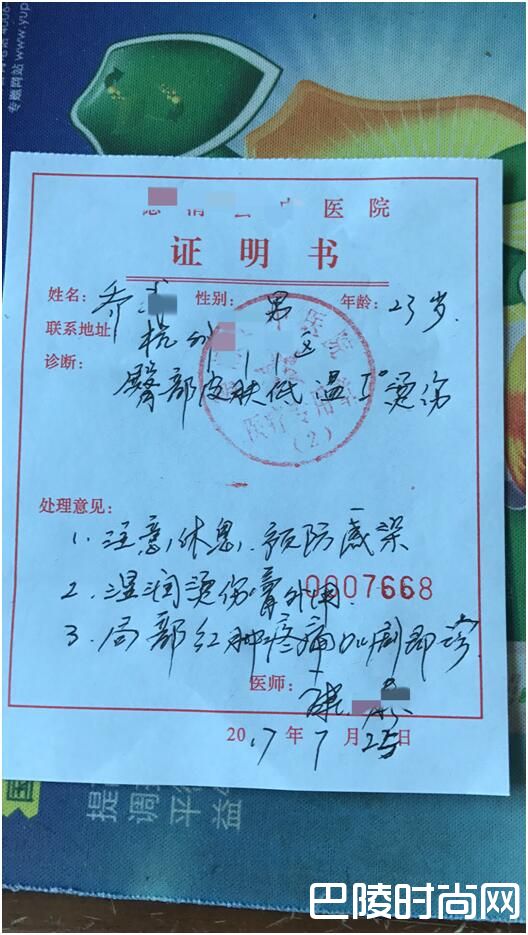 专题网站 www.yup
医院
证明书
姓名：乔 性别：男 年龄：23岁.
联系地址 杭州 区
诊断：
臀部皮肤低温Ⅰ°烫伤
医院
医疗专用章
(2)
处理意见：
1. 注意休息，预防感染
2. 湿润烫伤膏外用.
0007668
3. 局部红肿疼痛加剧即诊.
医师：
2017年7月25日
国
提
调
平
益
巴陵时尚网